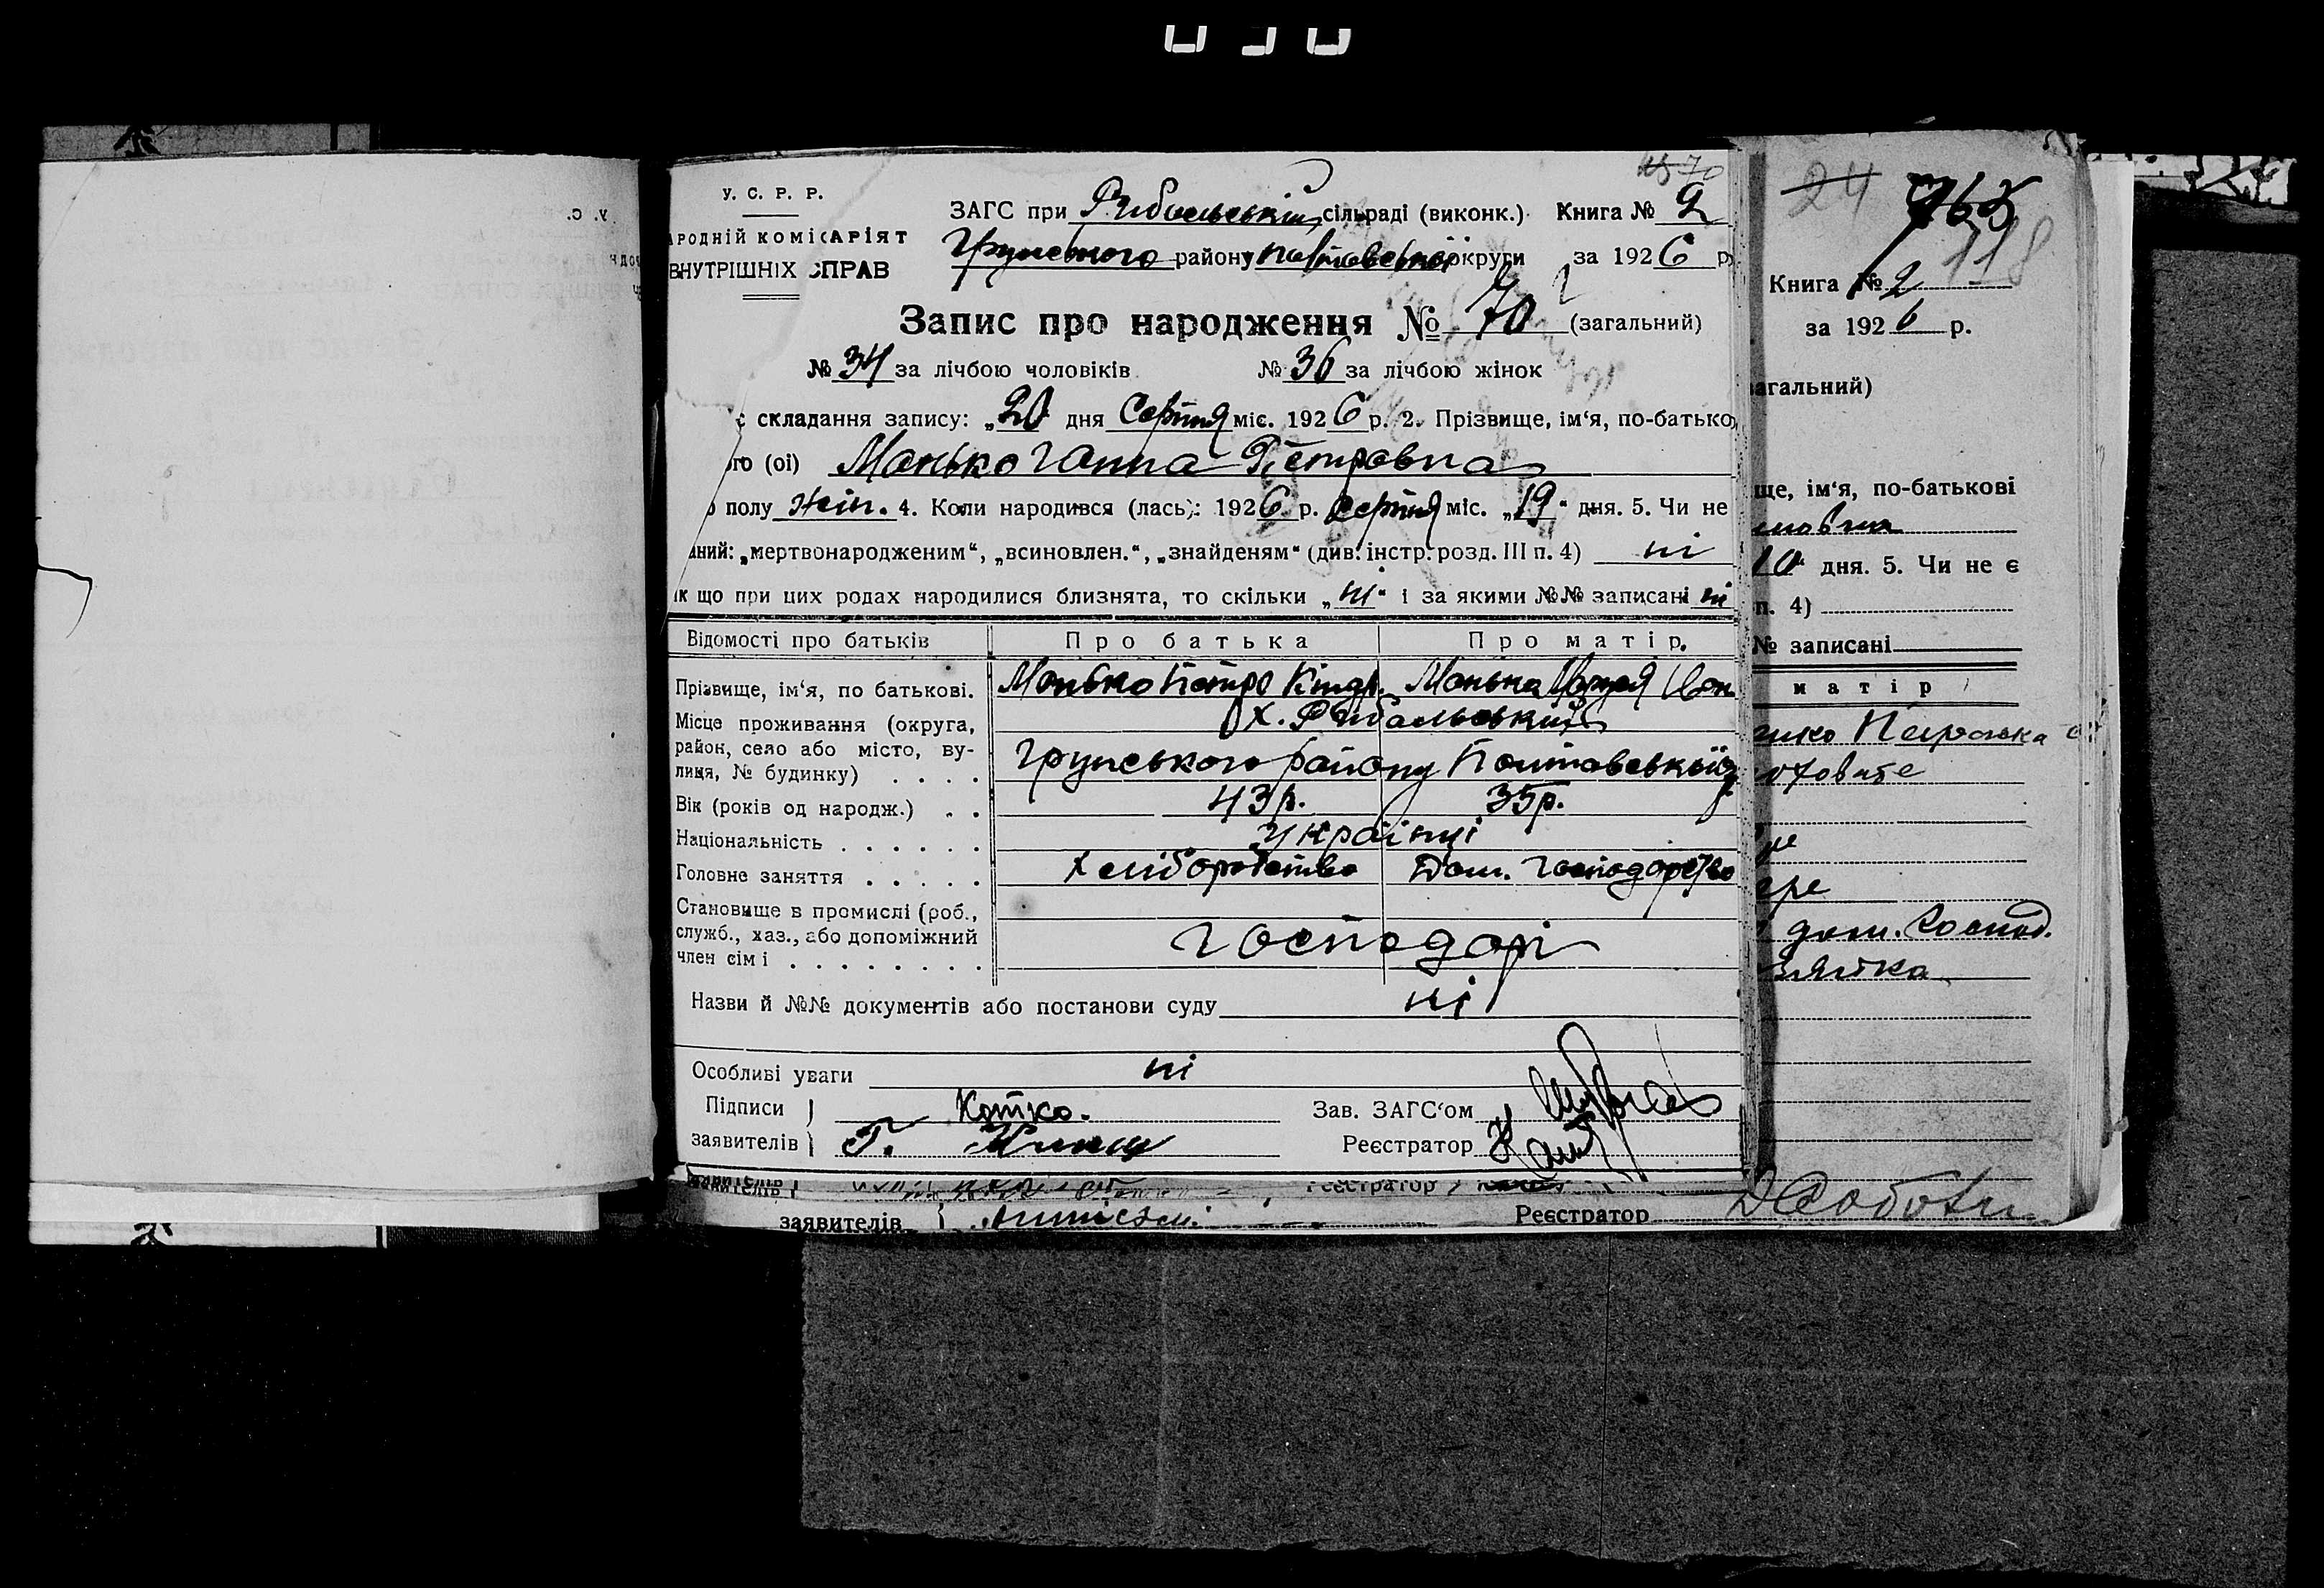 У. С. Р. Р.
АРОДНІЙ КОМІСАРІЯТ
ВНУТРІШНІХ СПРАВ
70
ЗАГС при Рибальській сільраді (виконк.) Книга № 2
Грунського району Полтавської округи за 1926 р.
Запис про народження № 70 (загальний)
№ 34 за лічбою чоловіків № 36 за лічбою жінок
с складання запису: „20“ дня Серпня міс. 1926 р. 2. Прізвище, ім‘я, по-батько
ого (ої) Манько Ганна Петровна
полу жін. 4. Коли народився (лась): 1926 р. Серпня міс. „19“ дня. 5. Чи не
аний: „мертвонародженим“, „всиновлен.“, „знайденям“ (див. інстр. розд. III п. 4) ні
як що при цих родах народилися близнята, то скільки „ні“ і за якими №№ записані ні
Відомості про батьків Про батька Про матір.
Прізвище, ім‘я, по батькові. Манько Петро Кіндр. Манька
Місце проживання (округа, район, село або місто, вулиця, № будинку) . . . . х. Рибальський
Грунського району Полтавської
Вік (років од народж.) . . 43 р. 35 р.
Національність . . . . . . Українці
Головне заняття . . . . . Хліборобство Дом. Господарство
Становище в промислі (роб.,
служб., хаз., або допоміжний
член сім і . . . . . . . . Господарі
Назви й №№ документів або постанови суду ні
Особливі уваги ні
Підписи Котко. Зав. ЗАГС‘ом
заявителів Г. Реєстратор
заявителів Реєстратор
24
118
Книга № 2
за 1926 р.
загальний)
ще, ім‘я, по-батькові
10“ дня. 5. Чи не є
п. 4)
№ записані
матір
дом. Господ.